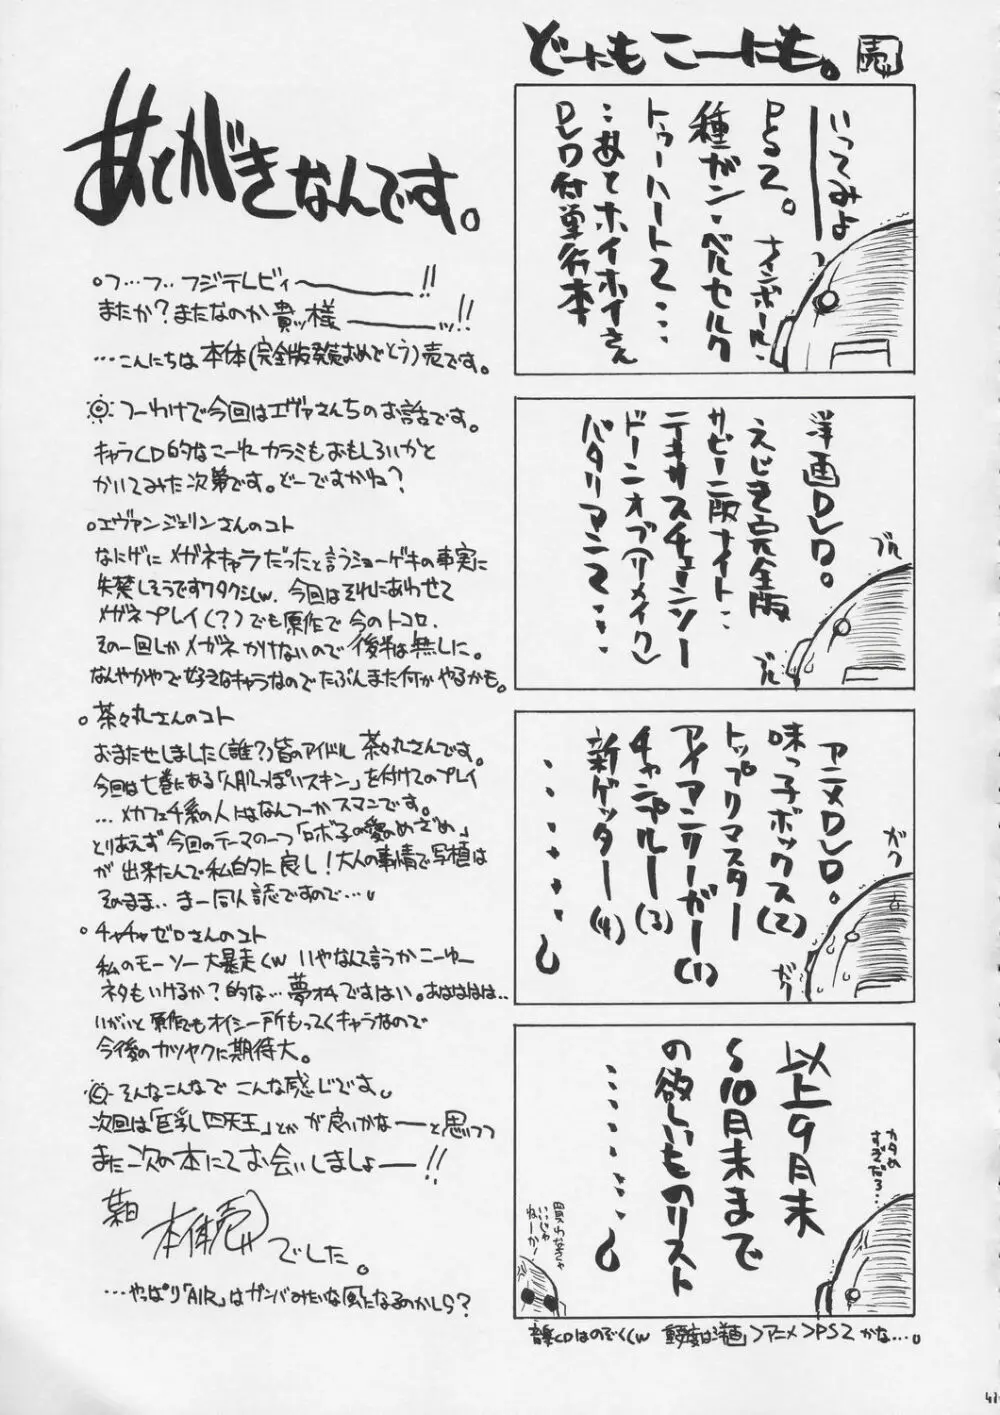 どーにも こーにも。売
いってみよー
PS2。ナインボール・
種ガン・ベルセルク
トゥーハート2・・・
・・あとホイホイさん
DVD付単行本
洋画DVD。
えじき完全版
サビーニ版ナイト・・
テキサスチェーンソー
ドーンオブ(リメイク)
バタリアン2・・・
ブル
ブル
アニメDVD。
味っ子ボックス(2)
トップリマスター
アイアンリーガー(1)
チャンプルー(3)
新ゲッター(4)
・・・・・・。
ガク
ガク
以上9月末
〜10月末まで
の欲しいものリスト
・・・・・・。
カタめ
すぎだろ・・・
買わなきゃ
いいじゃ
ねーかー
音楽CDはのぞくw 重要度は洋画>アニメ>PS2かな…。
あとがきなんです。
○フ…フ‥フジテレビィ〜――――!!
またか?またなのか貴ッ様――――ッ!!
…こんにちは本体(完全版発売おめでとう)売です。
つーわけで今回はエヴァさんちのお話です。
キャラCD的なこーゆーカラミもおもしろいかと
かいてみた次第です。どーですかね?
○エヴァンジェリンさんのコト
なにげにメガネキャラだったと言うショーゲキの事実に
失禁しそうですワタクシw. 今回はそれにあわせて
メガネプレイ(?)でも原作で今のトコロ、
その一回しかメガネかけないので後半は無しに。
なんやかやで好きなキャラなのでたぶんまた何かやるかも。
○茶々丸さんのコト
おまたせしました(誰?)皆のアイドル茶々丸さんです。
今回は七巻にある「人肌っぽいスキン」を付けてのプレイ
…メカフェチ系の人にはなんつーかスマンです。
とりあえず今回のテーマの一つ「ロボ子の愛のめざめ」
が出来たんで私的に良し!大人の事情で写植は
そのまま‥まー同人誌ですので…。
○チャチャゼロさんのコト
私のモーソー大暴走くw いやなんて言うかこーゆー
ネタもいけるか?的な…夢オチですはい。あはははは‥
いがいと原作でもオイシー所もってくキャラなので
今後のカツヤクに期待大。
そんなこんなでこんな感じです。
次回は「巨乳四天王」とかが良いかなーと思いつつ
また次の本にてお会いしましょー!!
本体売でした。
…やっぱり「AIR」はガンバみたいな風になるのかしら?
41